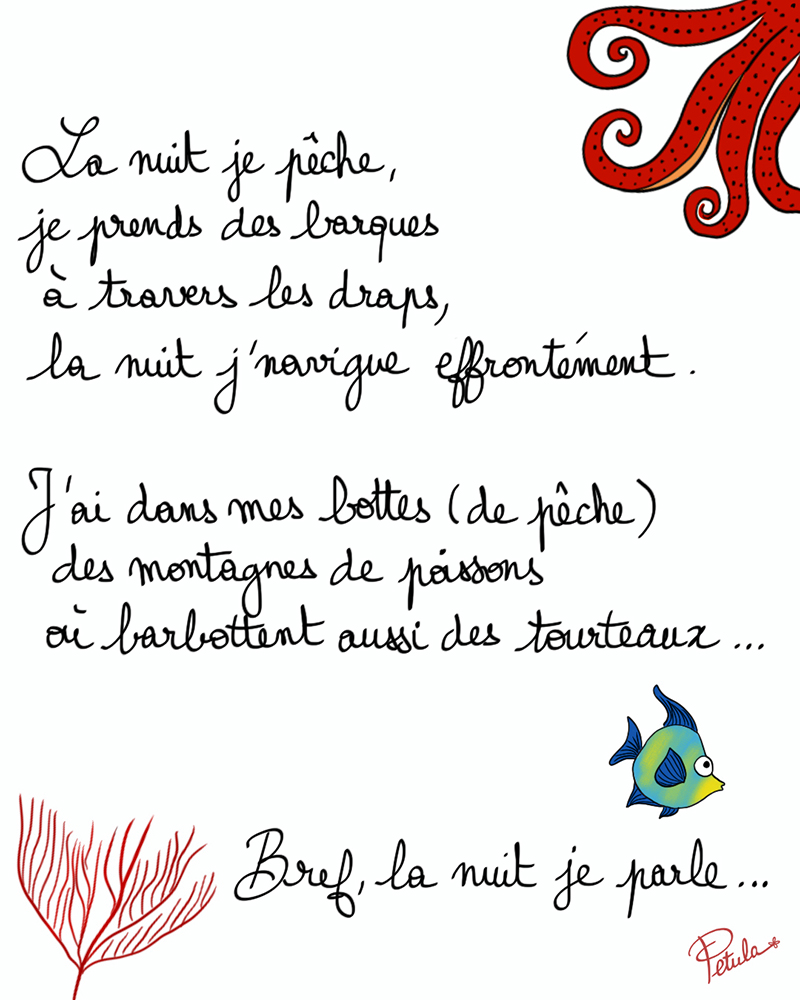 La nuit je pêche,
je prends des barques
à travers les draps,
la nuit j'navigue effrontément.
J'ai dans mes bottes (de pêche)
des montagnes de poissons
où barbottent aussi des tourteaux...
Bref, la nuit je parle...
Petula